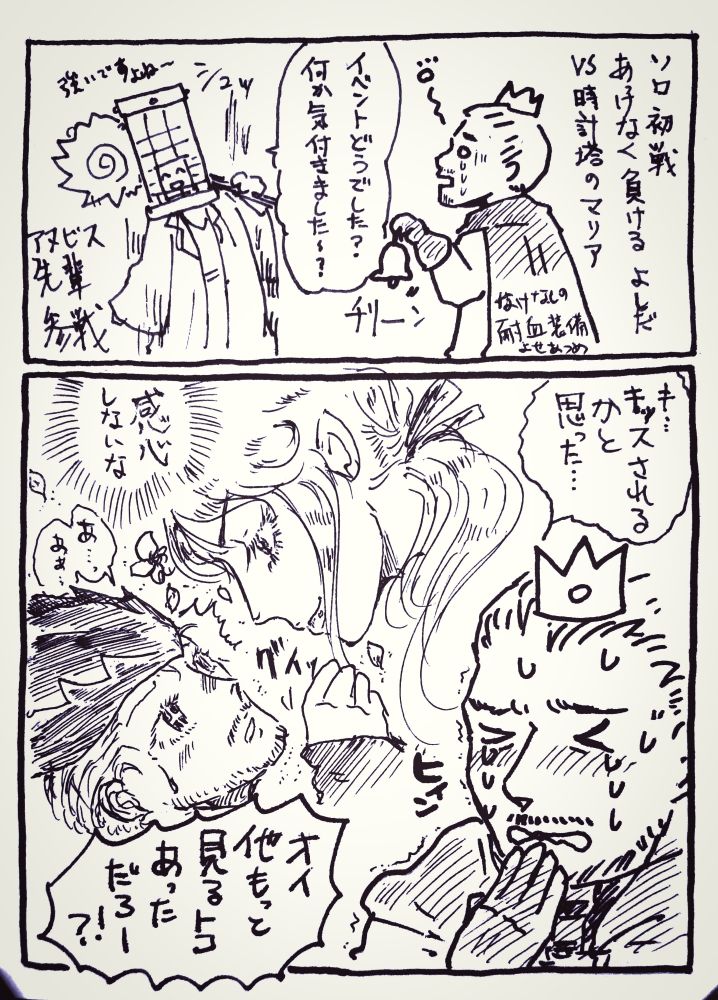 ソロ初戦
あっけなく負ける よしだ
VS 時計塔のマリア
ﾖﾛ〜
なけなしの
耐血装備
よせあつめ
チリーン
イベントどうでした?
何か気付きました〜?
シュッ
強いですよね〜
アヌビス
先輩
参戦
キ…
キッスされる
かと
思った…
感心
しないな
あ…
あぁ…
グイッ
ヒィン
オイ
他もっと
見るトコ
あった
だろー
?!